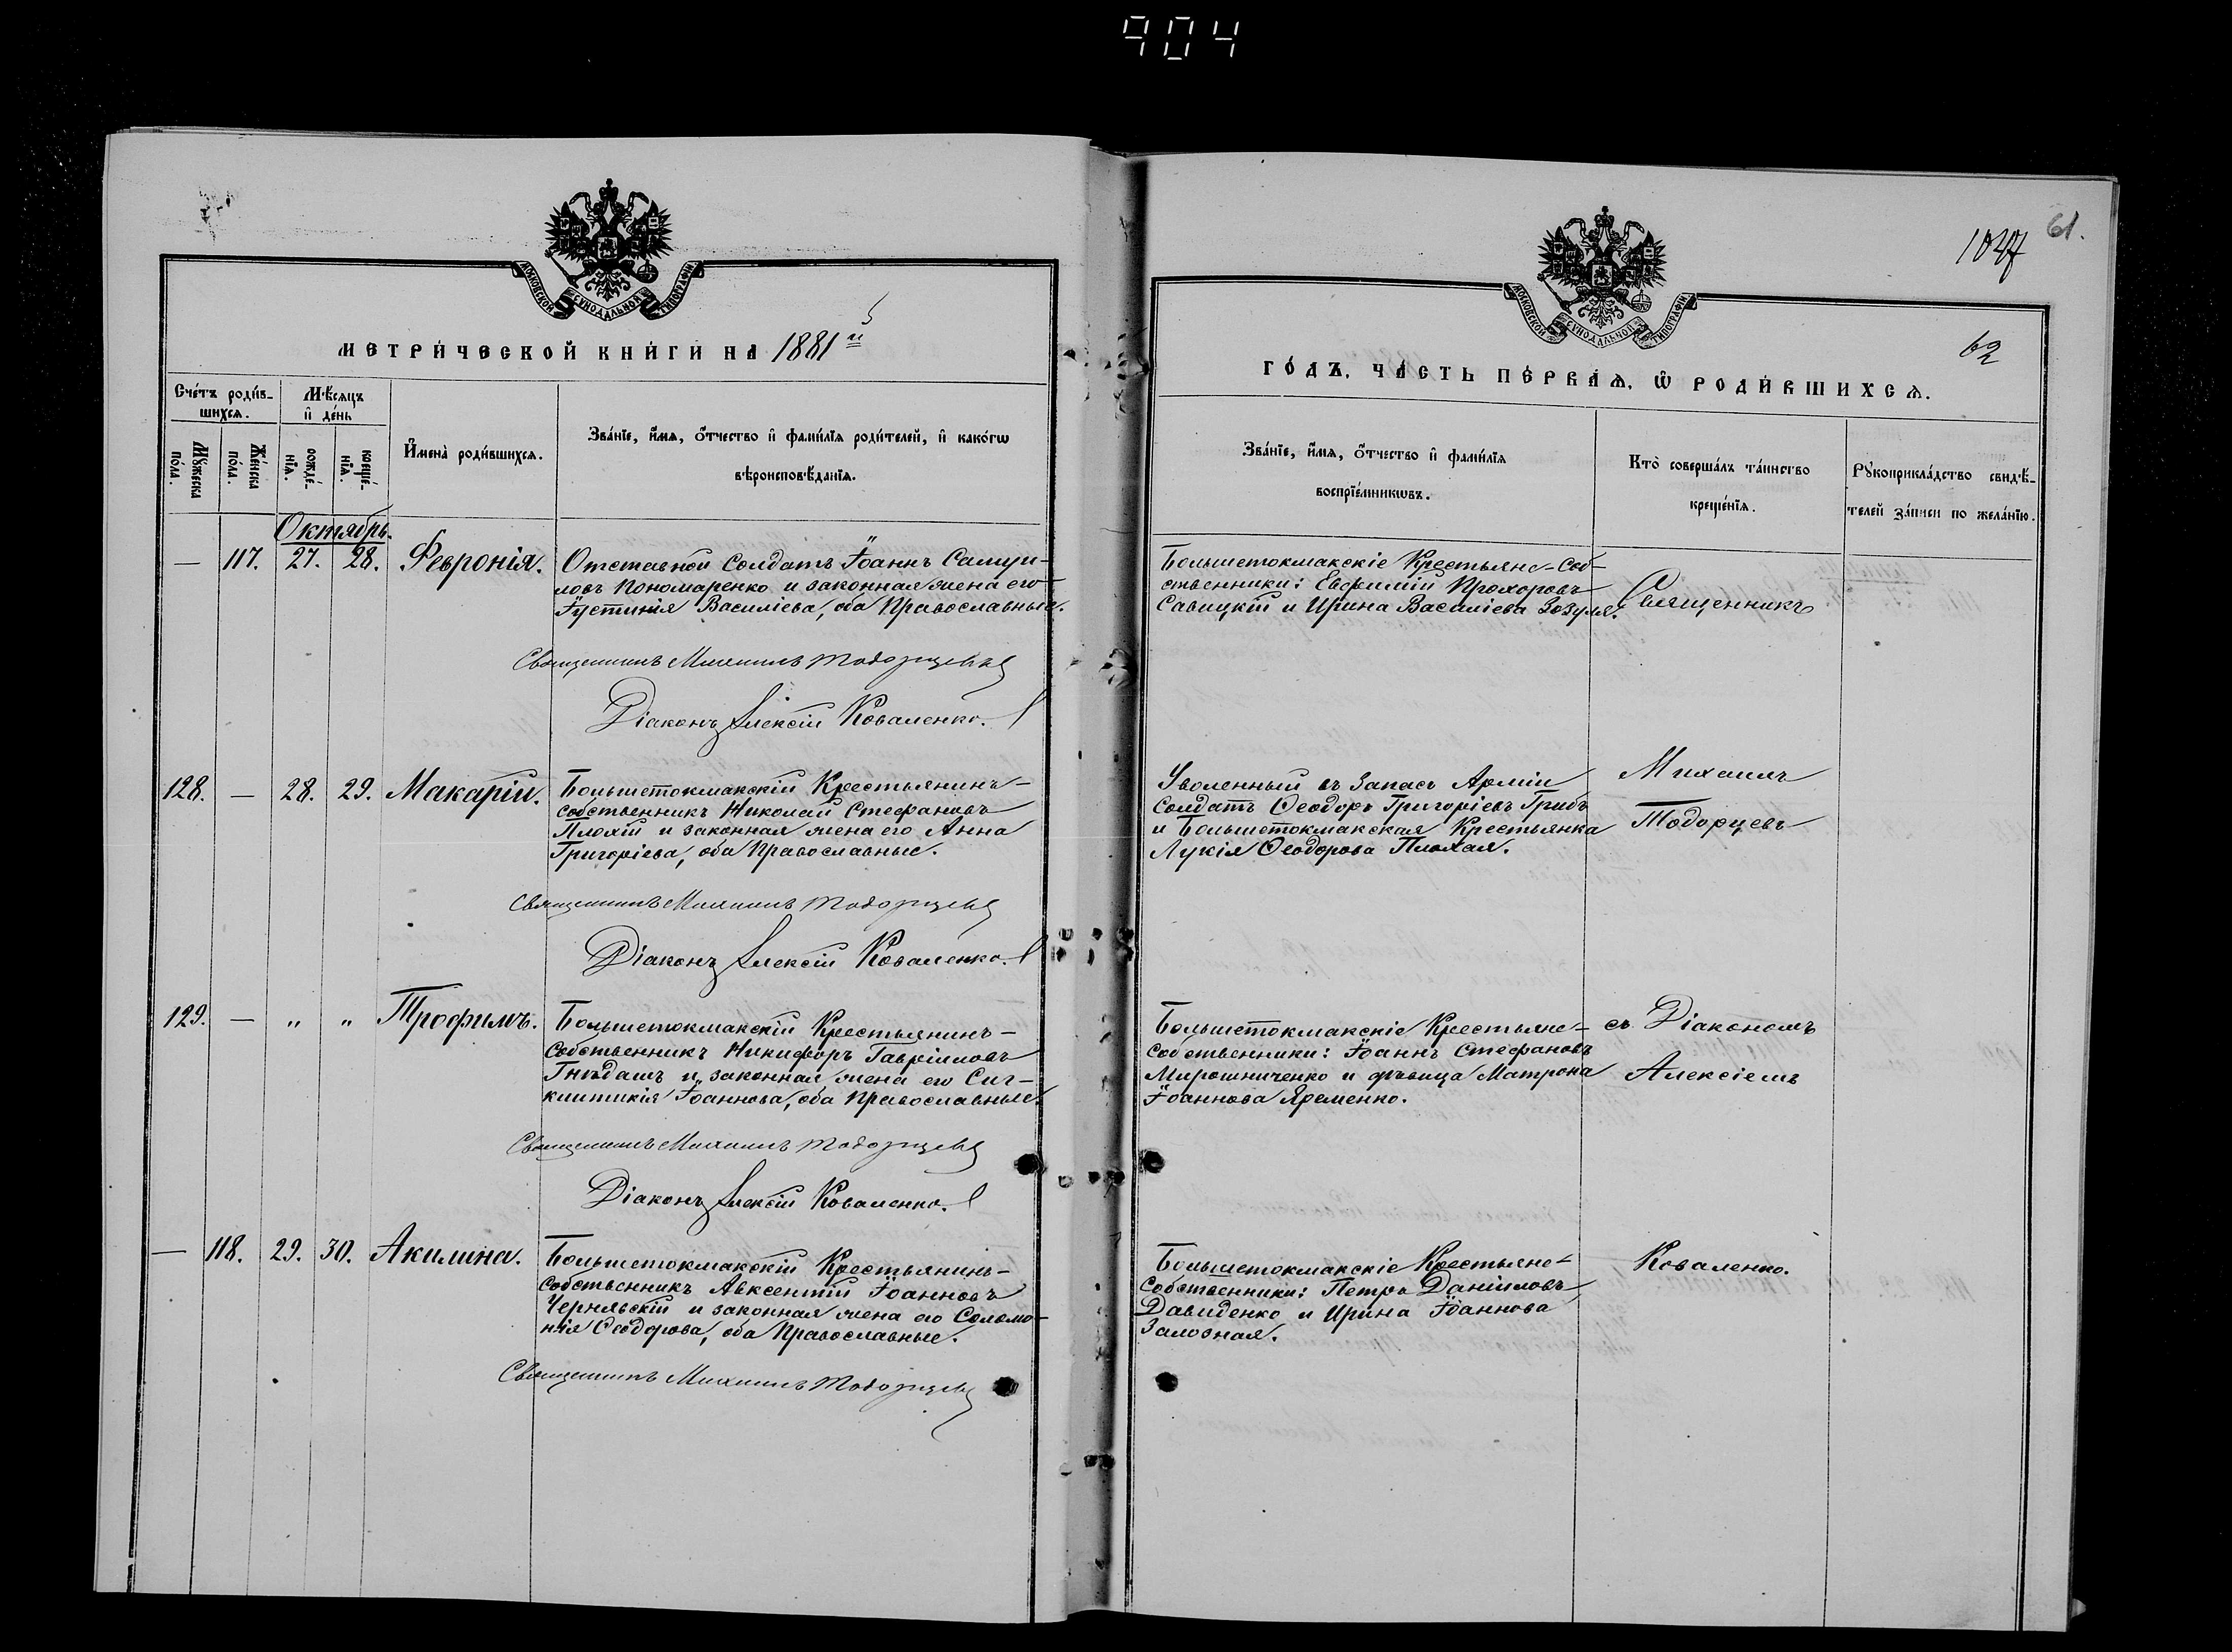 904
МОСКОВСКОЙ СѴНОДАЛЬНОЙ ТИПОГРАФІИ
МЕТРИ́ЧЕСКОЙ КНИ́ГИ НА 1881й
Сче́тъ роди́в-
шихсѧ.
Мѣ́сѧцъ
и҆ де́нь
Мꙋ́жеска
по́ла.
Же́нска
по́ла.
рожде́-
нїѧ.
креще́-
нїѧ.
И҆мена̀ роди́вшихсѧ.
Зва́нїе, и҆́мѧ, ѻ҆́тчество и҆ фами́лїѧ роди́телей, и҆ како́гѡ
вѣроисповѣ́данїѧ.
Октябрь.
— 117. 27. 28. Февронія.
Отставной Солдатъ Іоаннъ Самуи-
ловъ Пономаренко и законная жена его
Іустинія Василіева, оба Православные.
Священникъ Михаилъ Тодорцевъ
Діаконъ Алексій Коваленко.
128. — 28. 29. Макарій.
Большетокмакскій Крестьянинъ-
собственникъ Николай Стефановъ
Плохій и законная жена его Анна
Григоріева, оба Православные.
Священникъ Михаилъ Тодорцевъ
Діаконъ Алексій Коваленко.
129. — „ „ Трофимъ.
Большетокмакскій Крестьянинъ-
собственникъ Никифоръ Гавріиловъ
Гнѣдашъ и законная жена его Син-
клитикія Іоаннова, оба Православные.
Священникъ Михаилъ Тодорцевъ
Діаконъ Алексій Коваленко.
— 118. 29. 30. Акилина.
Большетокмакскій Крестьянинъ-
собственникъ Авксентій Іоанновъ
Чернявскій и законная жена его Соломо-
нія Ѳеодорова, оба Православные.
Священникъ Михаилъ Тодорцевъ
61.
1047
62
МОСКОВСКОЙ СѴНОДАЛЬНОЙ ТИПОГРАФІИ
ГО́ДЪ, ЧА́СТЬ ПЕ́РВАѦ, Ѽ РОДИ́ВШИХСѦ.
Зва́нїе, и҆́мѧ, ѻ҆́тчество и҆ фами́лїѧ
воспрїе́мникѡвъ.
Кто̀ соверша́лъ та́инство
креще́нїѧ.
Рꙋкоприкла́дство свидѣ́-
телей за́писи по жела́нїю.
Большетокмакскіе Крестьяне-соб-
ственники: Евфимій Прохоровъ
Савицкій и Ирина Василіева Зозуля.
Священникъ
Уволенный въ Запасъ Арміи
солдатъ Ѳеодоръ Григоріевъ Грибъ
и Большетокмакская Крестьянка
Лукія Ѳеодорова Плохая.
Михаилъ
Тодорцевъ
Большетокмакскіе Крестьяне-
собственники: Іоаннъ Стефановъ
Мирошниченко и дѣвица Матрона
Іоаннова Яременко.
съ Діакономъ
Алексіемъ
Большетокмакскіе Крестьяне-
Собственники: Петръ Даніиловъ
Давиденко и Ирина Іоаннова
Залозная.
Коваленко.